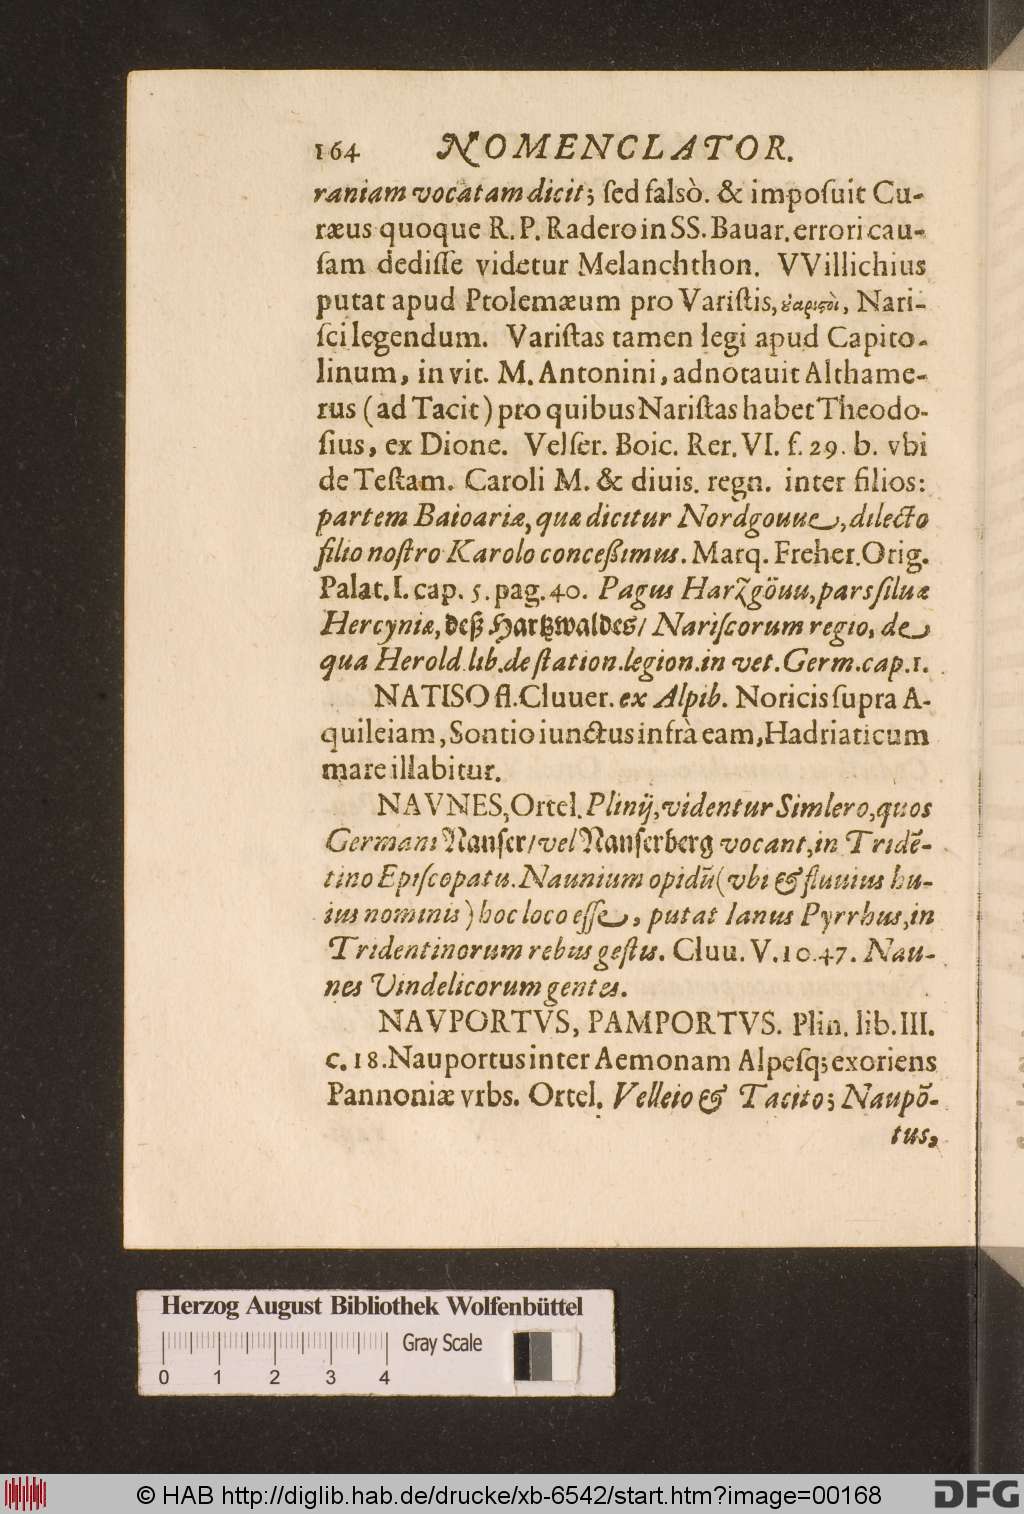 164 NOMENCLATOR.
raniam vocatam dicit; ſed falsò. & impoſuit Cu-
ræus quoque R. P. Radero in SS. Bauar. errori cau-
ſam dediſſe videtur Melanchthon. VVillichius
putat apud Ptolemæum pro Variſtis, Nari-
ſci legendum. Variſtas tamen legi apud Capito-
linum, in vit. M. Antonini, adnotauit Althame-
rus (ad Tacit) pro quibus Nariſtas habet Theodo-
ſius, ex Dione. Velſer. Boic. Rer. VI. f. 29. b. vbi
de Teſtam. Caroli M. & diuis. regn. inter filios:
partem Baioariæ, quæ dicitur Nordgouue, dilecto
filio noſtro Karolo conceßimus. Marq. Freher. Orig.
Palat. I. cap. 5. pag. 40. Pagus Harzgöuu, pars ſiluæ
Hercyniæ, deß Hartzwaldes/ Nariſcorum regio, de
qua Herold. lib. de ſtation. legion. in vet. Germ. cap. 1.
NATISO fl. Cluuer. ex Alpib. Noricis ſupra A-
quileiam, Sontio iunctus infrà eam, Hadriaticum
mare illabitur.
NAVNES, Ortel. Plinij, videntur Simlero, quos
Germani Nanſer/ vel Nanſerberg vocant, in Tridẽ-
tino Epiſcopatu. Naunium opidũ (vbi & fluuius hu-
ius nominis) hoc loco eſſe, putat Ianus Pyrrhus, in
Tridentinorum rebus geſtis. Cluu. V. 10. 47. Nau-
nes Vindelicorum gentes.
NAVPORTVS, PAMPORTVS. Plin. lib. III.
c. 18. Nauportus inter Aemonam Alpeſq; exoriens
Pannoniæ vrbs. Ortel. Velleio & Tacito; Naupõ-
tus,
Herzog August Bibliothek Wolfenbüttel
Gray Scale
0 1 2 3 4
© HAB http://diglib.hab.de/drucke/xb-6542/start.htm?image=00168
DFG